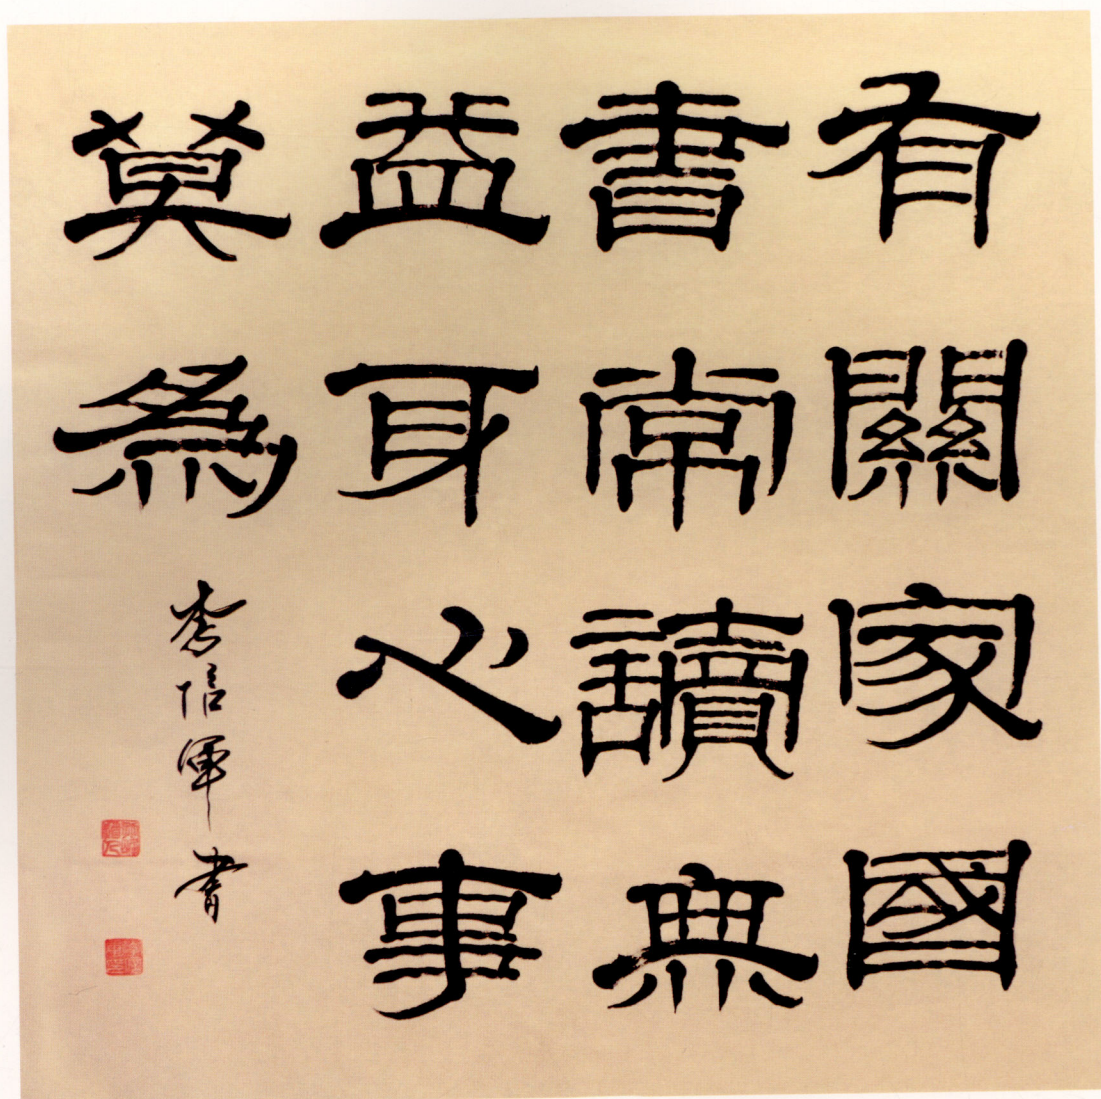 有關家國
書常讀無
益身心事
莫爲
李信軍書